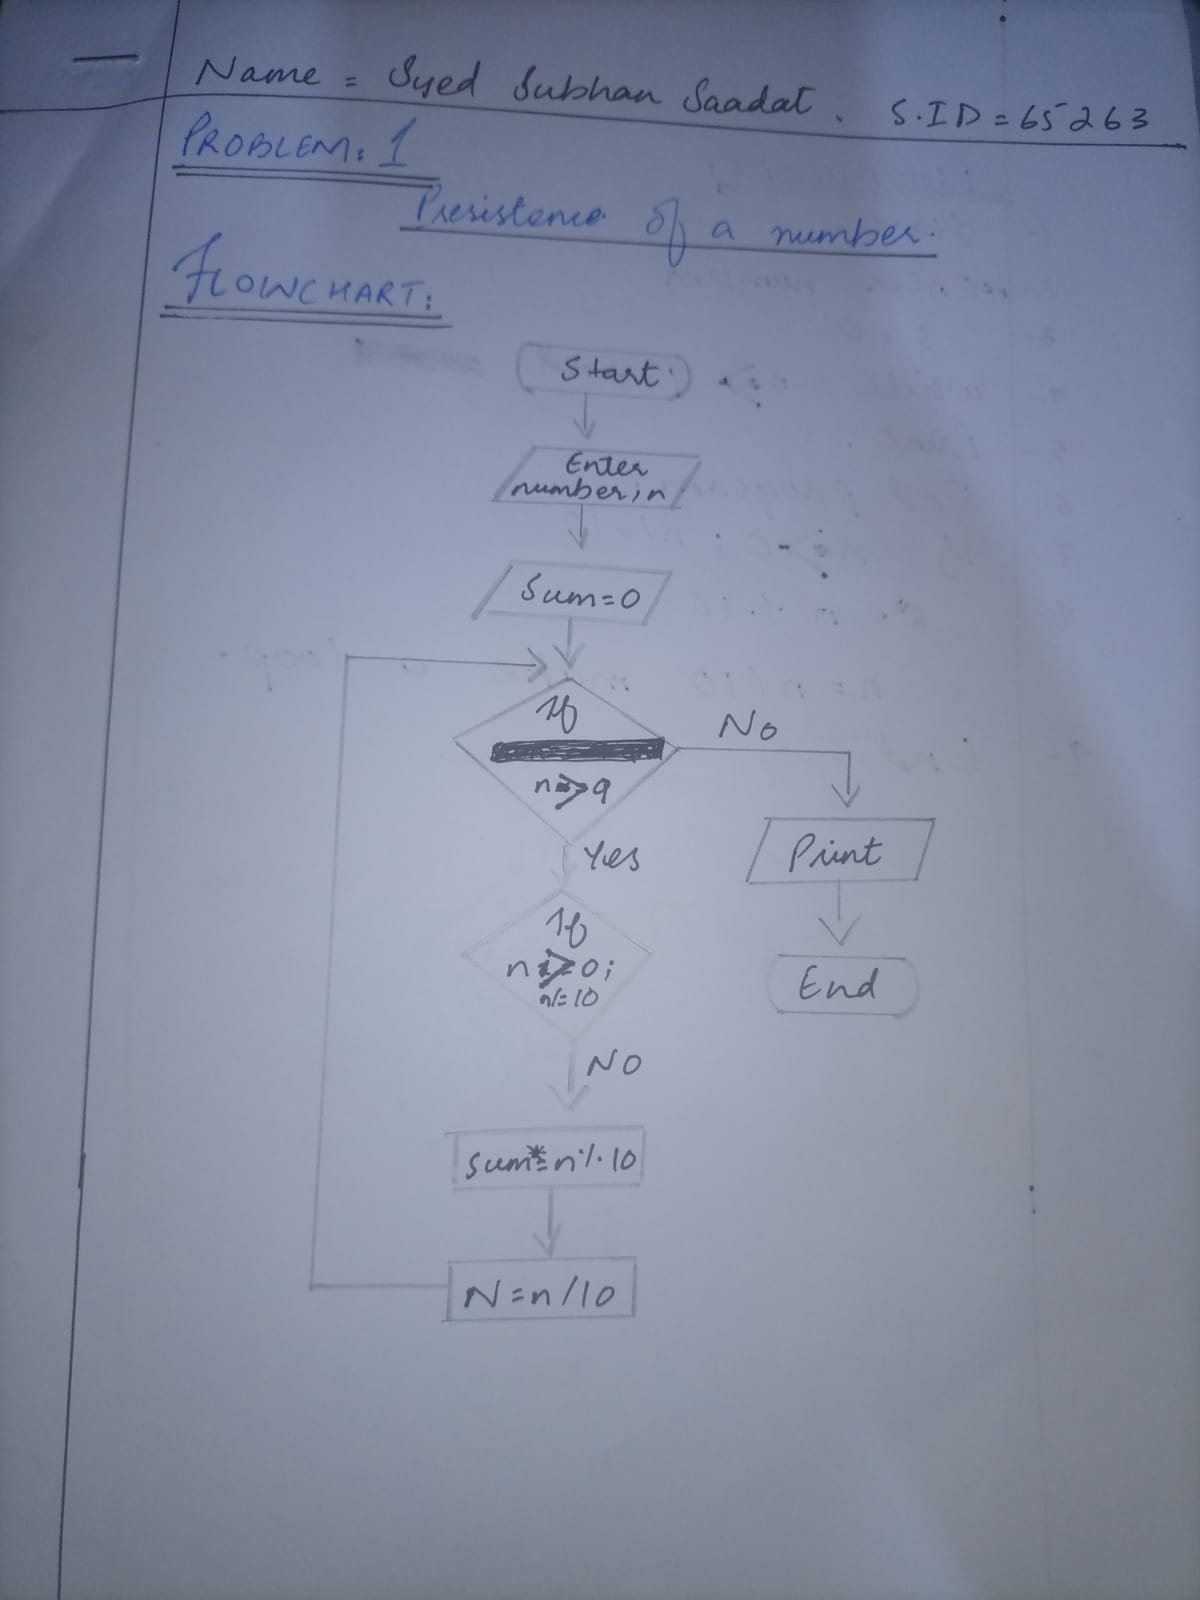 Name = Syed Subhan Saadat. S.ID = 65263
PROBLEM: 1
Presistence of a number.
FLOWCHART:
Start
Enter
number;n
Sum=0
If
n>9
No
Yes
Print
If
n>=0;
n/=10
End
NO
Sum*=n%10
N=n/10